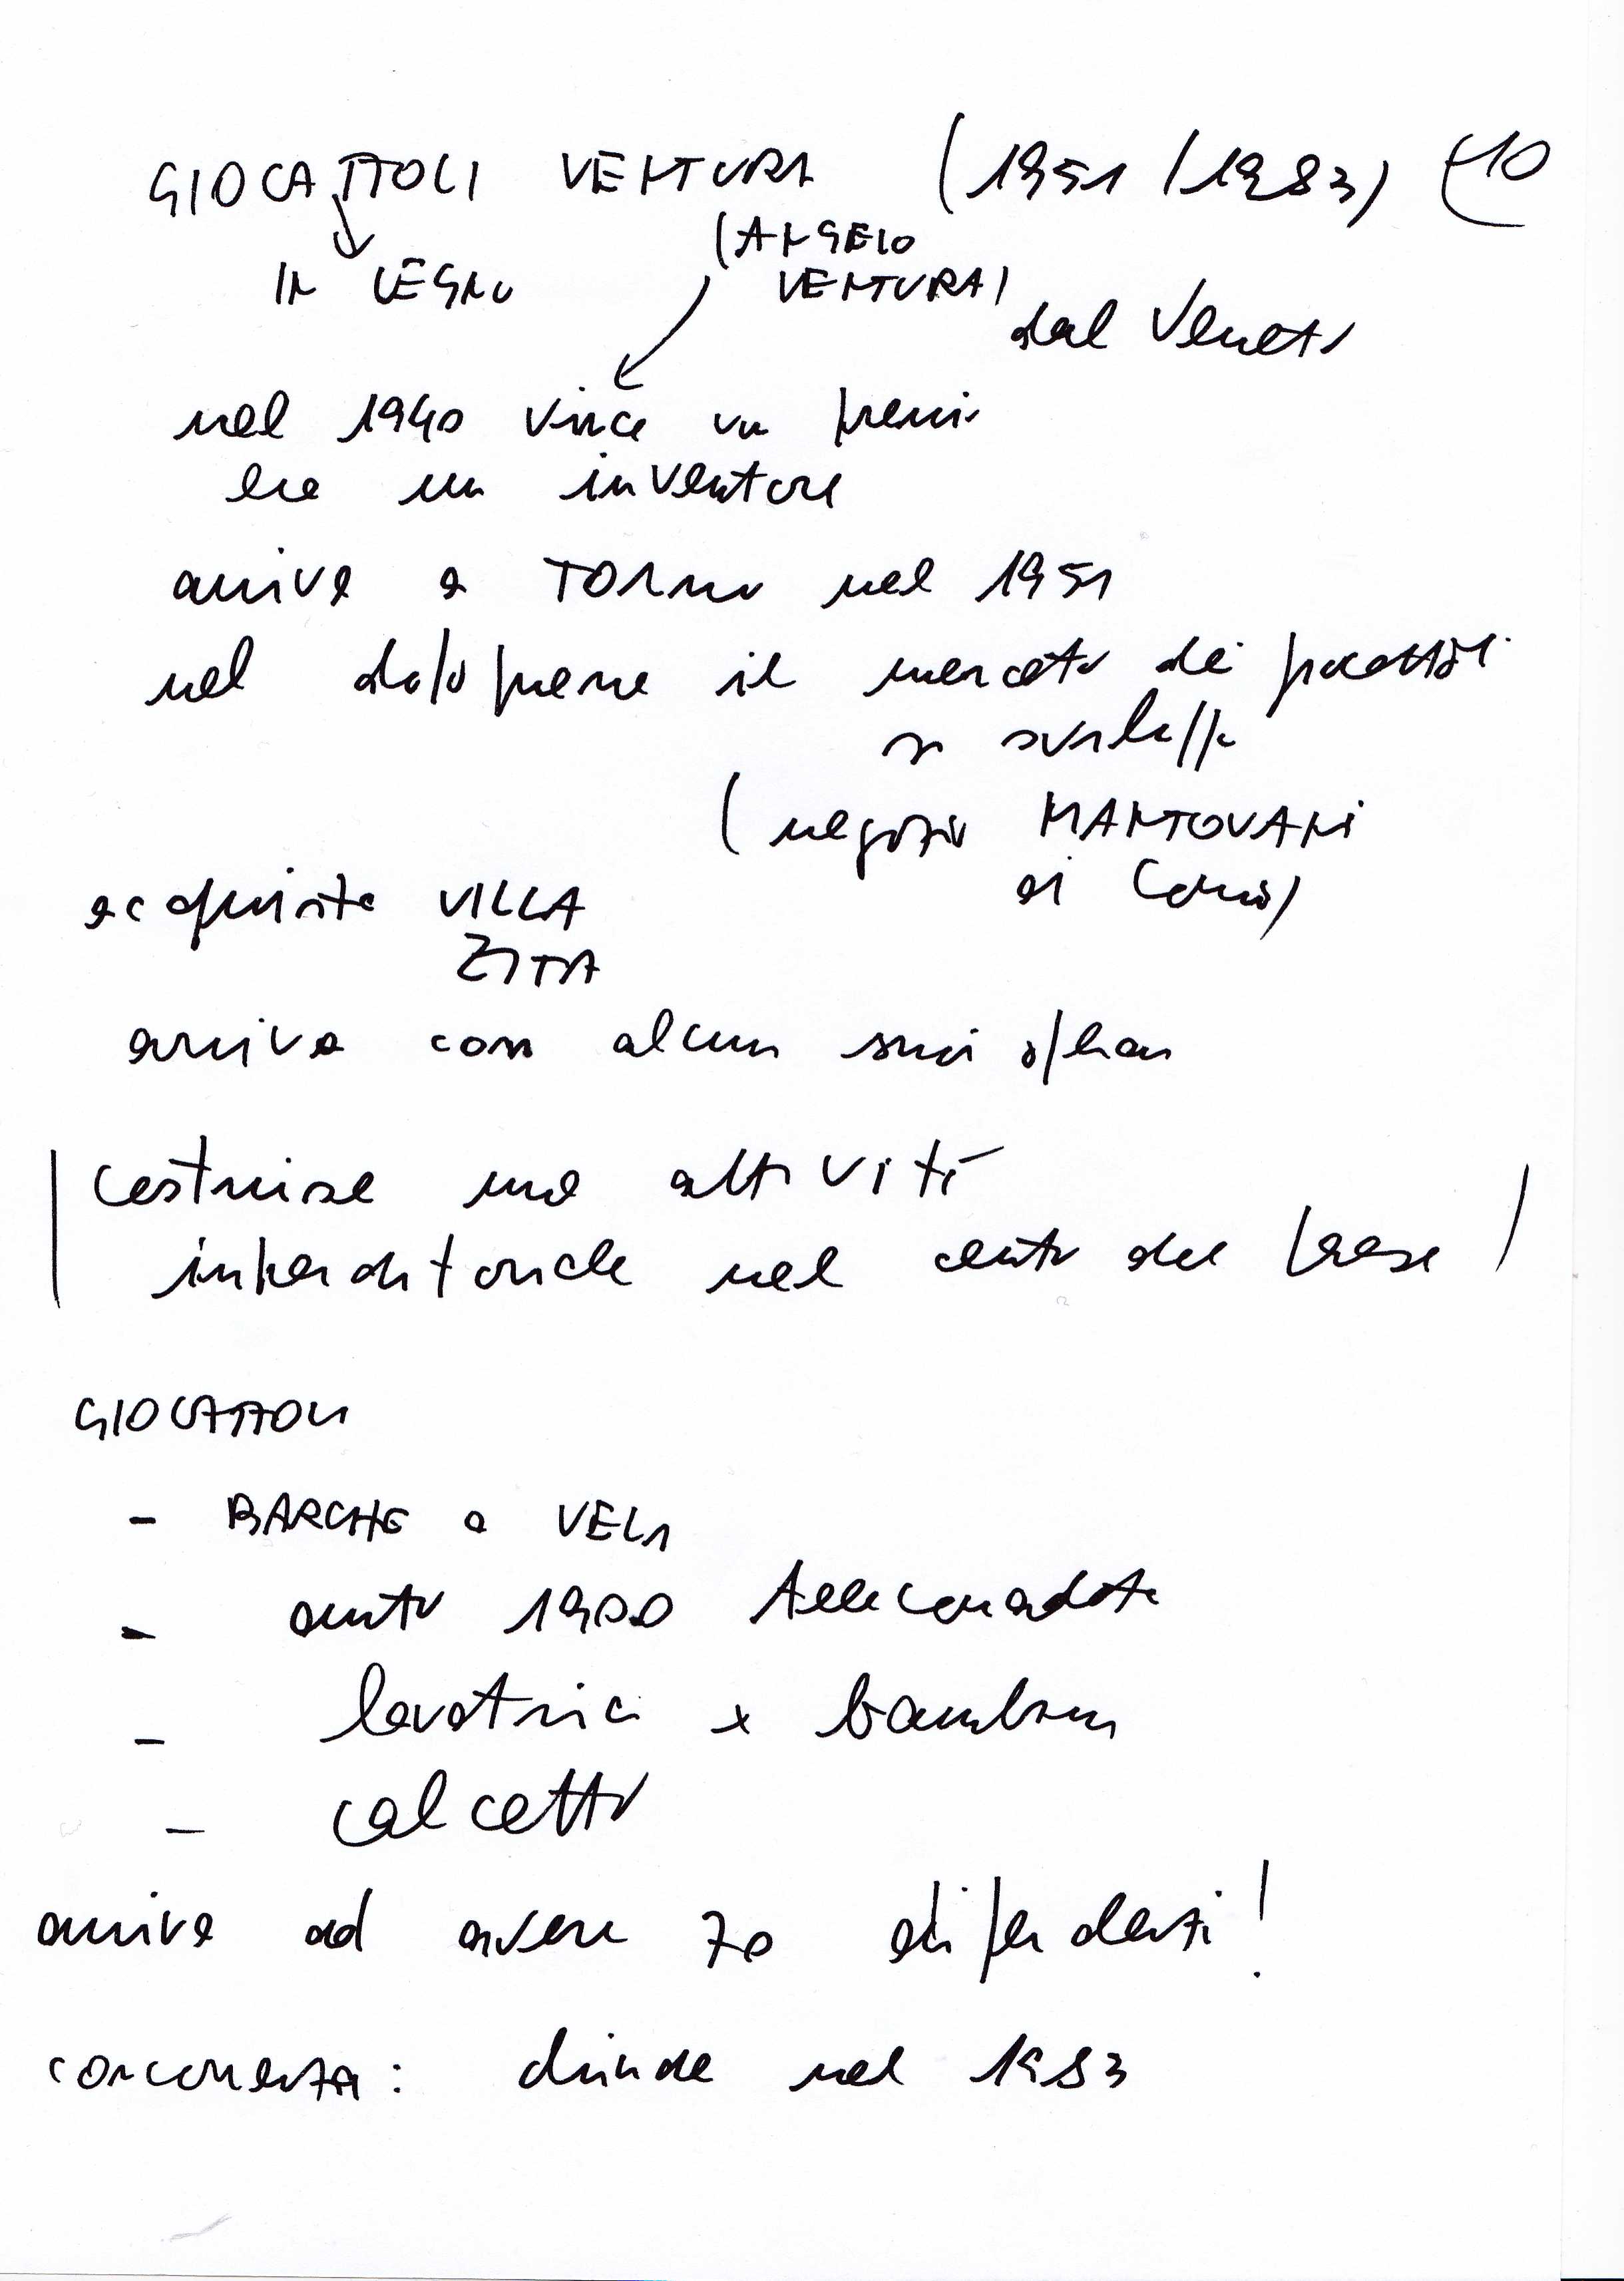 GIOCATTOLI VENTURA (1951/1983) 10
IN LEGNO (ANGELO VENTURA) dal Veneto
nel 1940 vince un premio
era un inventore
arriva a TORNO nel 1951
nel dopo guerra il mercato dei giocattoli
si sviluppa
(negozio MANTOVANI
di Como)
acquista VILLA
ZITA
arriva con alcuni suoi operai
costruisce una attività
imprenditoriale nel centro del paese
GIOCATTOLI
- BARCHE a VELA
- auto 1900 telecomandata
- lavatrici x bambini
- calcetto
arriva ad avere 70 dipendenti!
concorrenza: chiude nel 1983